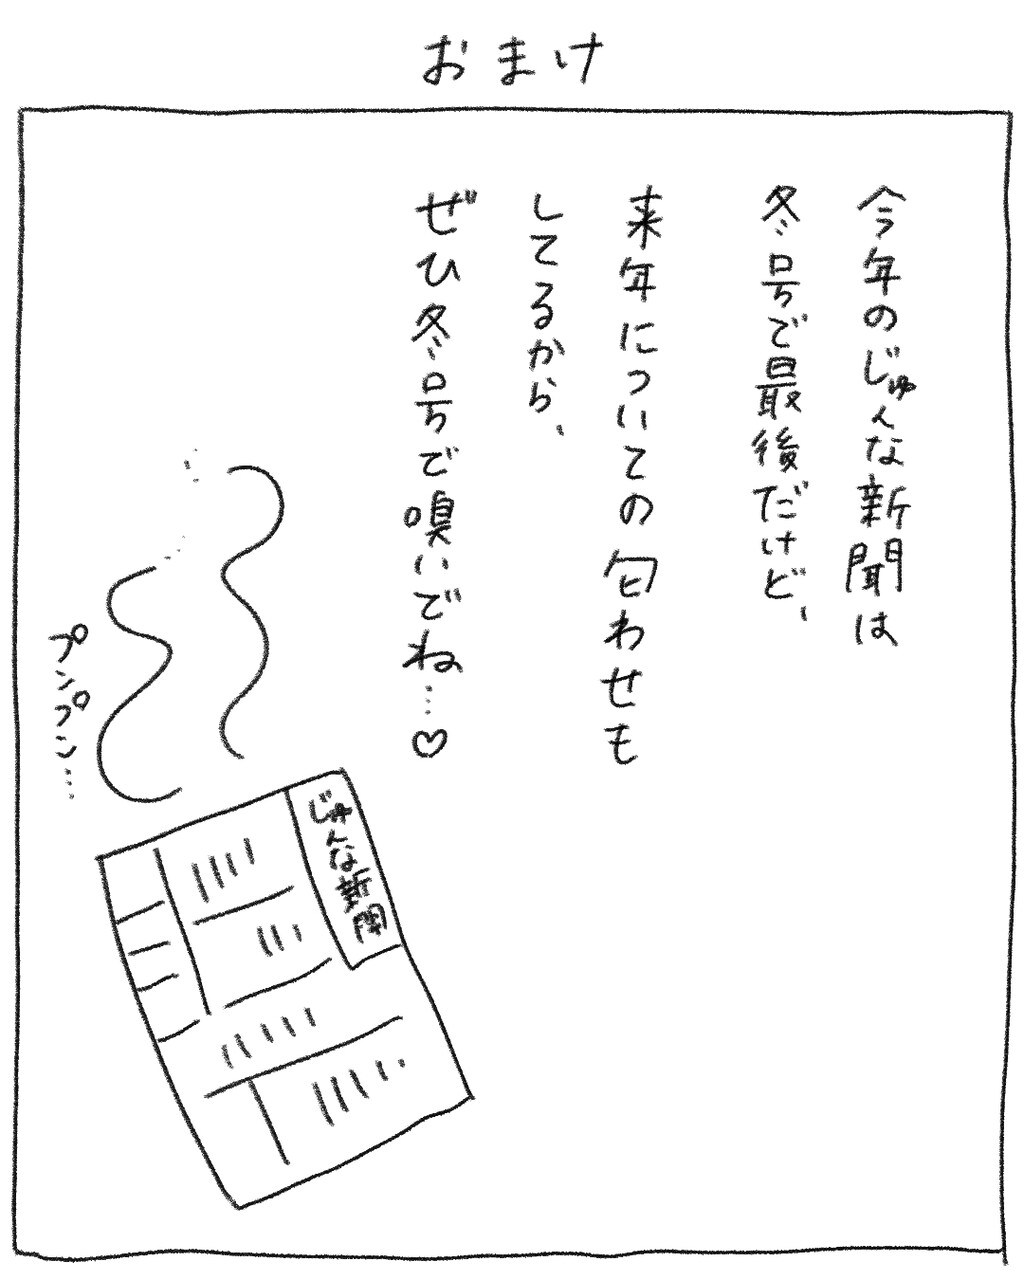 おまけ
今年のじゅんな新聞は
冬号で最後だけど、
来年についての匂わせも
してるから、
ぜひ冬号で嗅いでね…♡
プンプン…
じゅんな新聞